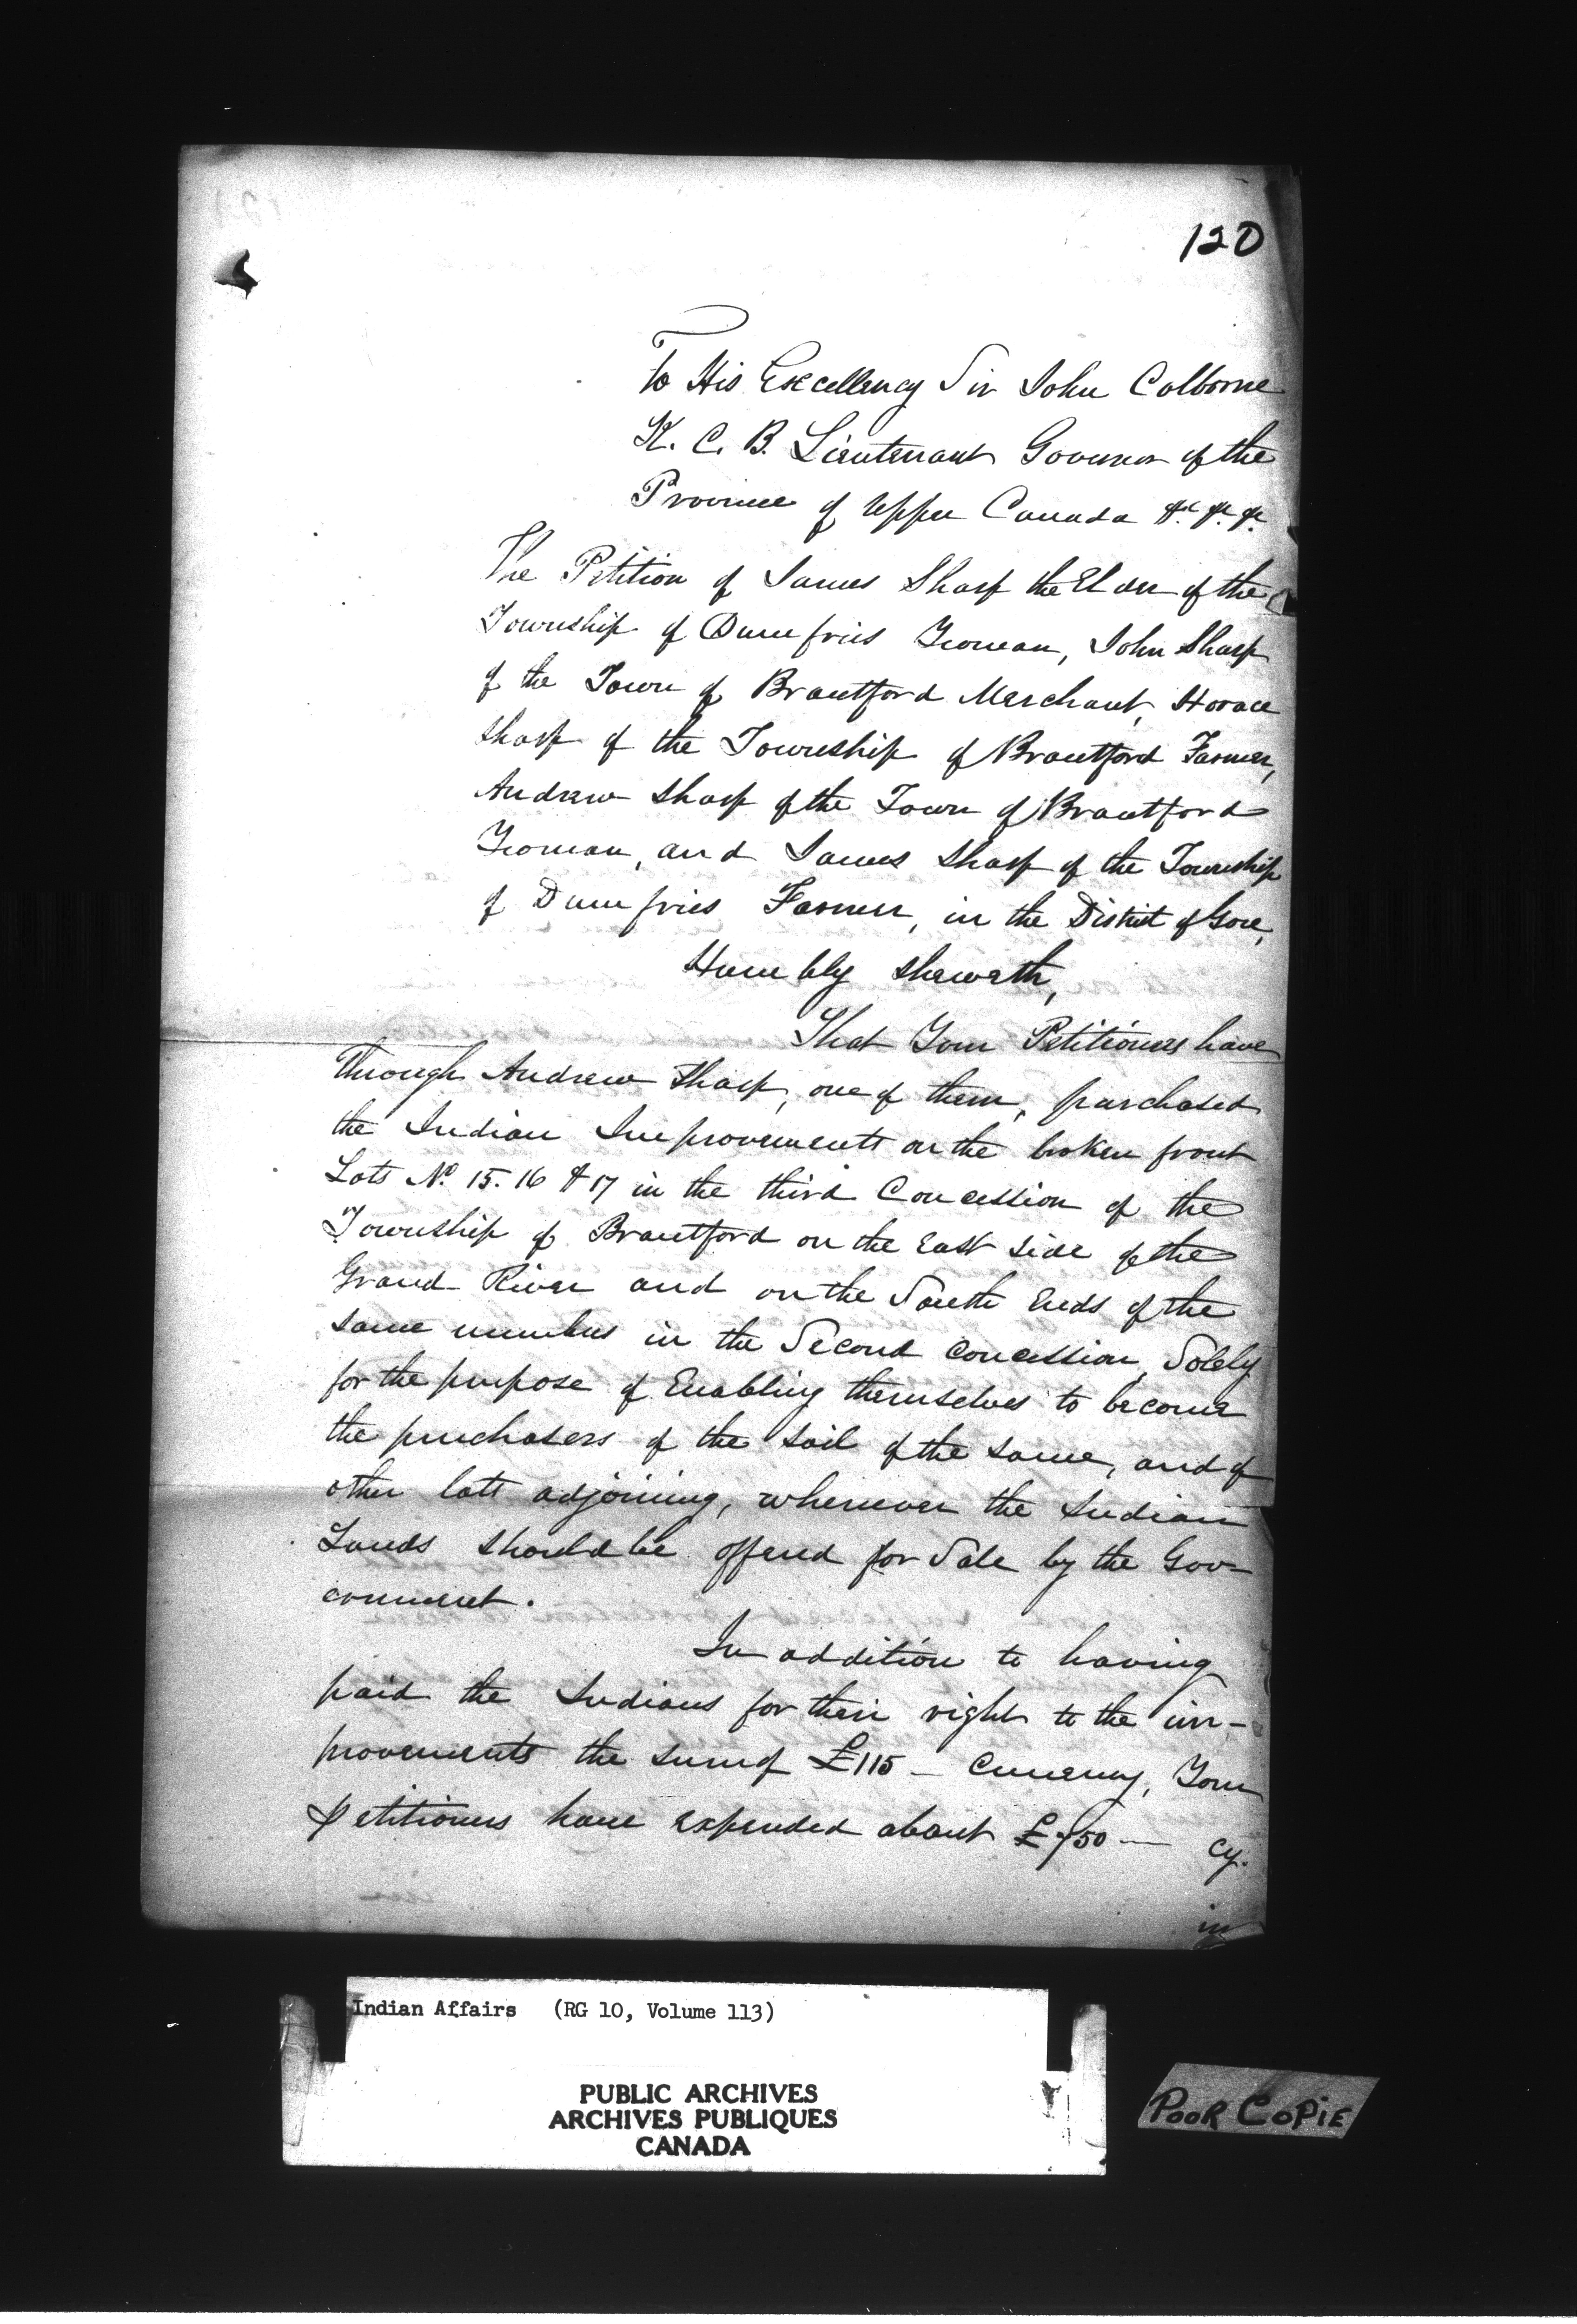 120
To His Excellency Sir John Colborne
K. C. B. Lieutenant Governor of the
Province of Upper Canada &c. &c. &c.
The Petition of James Sharp the Elder of the
Township of Dumfries Yeoman, John Sharp
of the Town of Brantford Merchant, Horace
Sharp of the Township of Brantford Farmer,
Andrew Sharp of the Town of Brantford
Yeoman, and James Sharp of the Township
of Dumfries Farmer, in the District of Gore,
Humbly sheweth,
That Your Petitioners have
through Andrew Sharp, one of them, purchased
the Indian Improvements on the broken front
Lots No. 15. 16 & 17 in the third Concession of the
Township of Brantford on the East side of the
Grand River and on the South Ends of the
same numbers in the Second Concession, Solely
for the purpose of Enabling themselves to become
the purchasers of the soil of the same, and of
other lots adjoining, whenever the Indian
Lands should be offered for Sale by the Gov-
ernment.
In addition to having
paid the Indians for their right to the im-
provements the sum of £115 — Currency, Your
Petitioners have expended about — cy.
in
Indian Affairs (RG 10, Volume 113)
PUBLIC ARCHIVES
ARCHIVES PUBLIQUES
CANADA
POOR COPIE